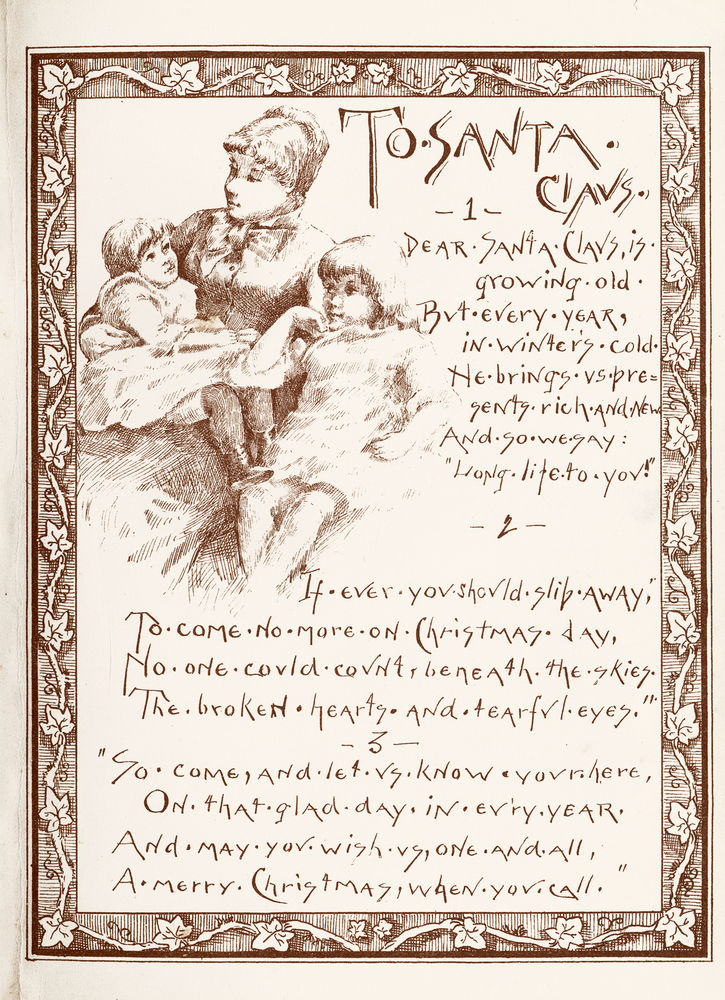 To·Santa·
Claus·
-1-
Dear·Santa·Claus, is·
growing·old·
But·every·year,
in·winter's·cold·
He·brings·us·pre=
sents·rich·and·new
And·so·we·say:
"Long·life·to·you!"
-2-
If·ever·you·should·slip·away,"
To·come·no·more·on·Christmas·day,
No·one·could·count, beneath·the·skies·
The·broken·hearts·and·tearful·eyes."
-3-
"So·come, and·let·us·know·your·here,
On·that·glad·day·in·ev'ry·year·
And·may·you·wish·us, one·and·all,
A·merry·Christmas, when·you·call."